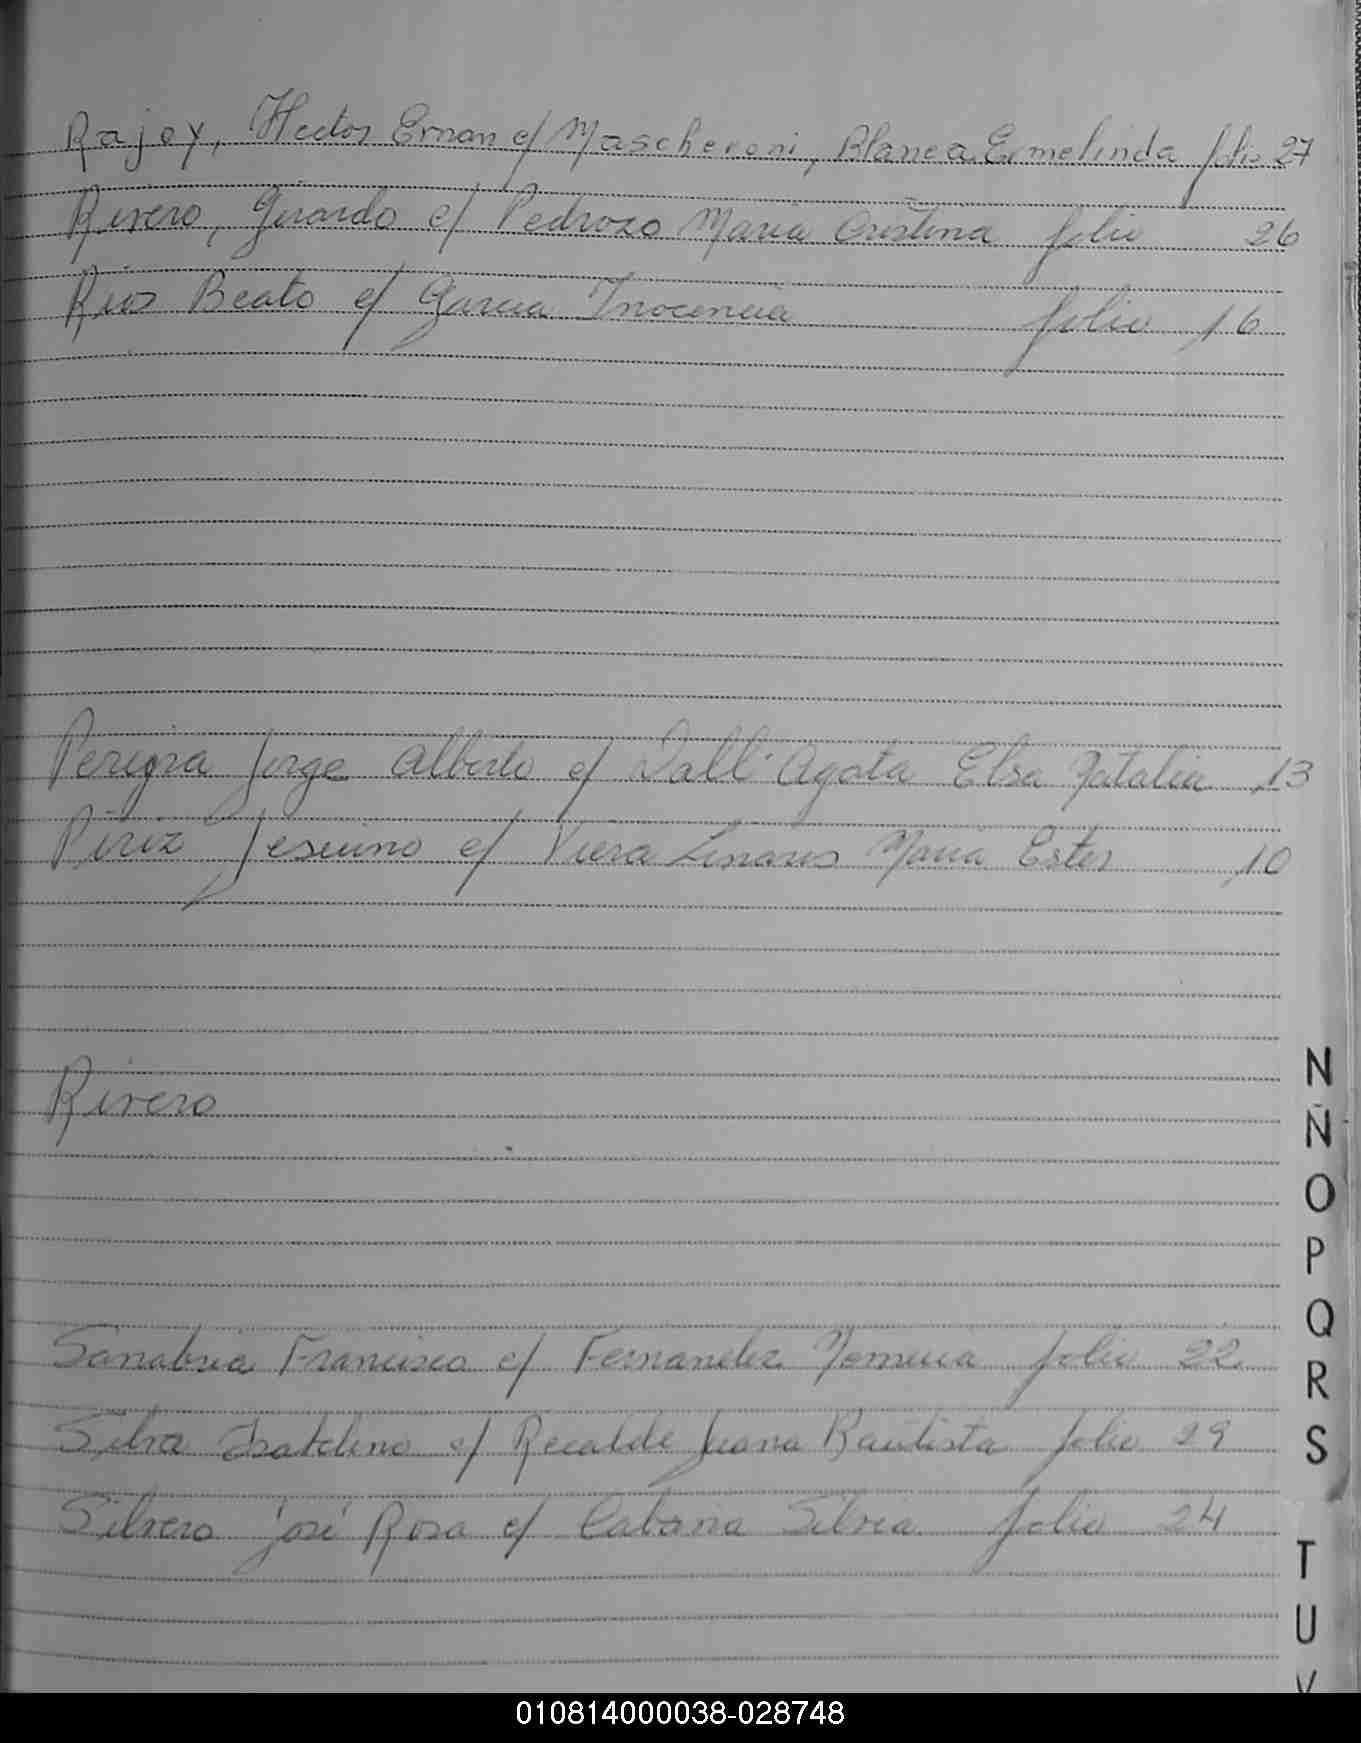 Rajoy, Hector Ernan c/ Mascheroni, Blanca Ermelinda folio 27
Rivero, Girardo c/ Pedrozo Maria Cristina folio 26
Rios Beato c/ Garcia Inocencia folio 16
Pereyra Jorge Alberto c/ Dall'Agata Elsa Natalia 13
Piriz Jesuino c/ Viera Linares Maria Ester 10
Rivero
Sanabria Francisco c/ Fernandez folio 22
Silva c/ Recalde Juana Bautista folio 29
Silvero José Rosa c/ Cabaña Silvia folio 24
N
Ñ
O
P
Q
R
S
T
U
V
010814000038-028748